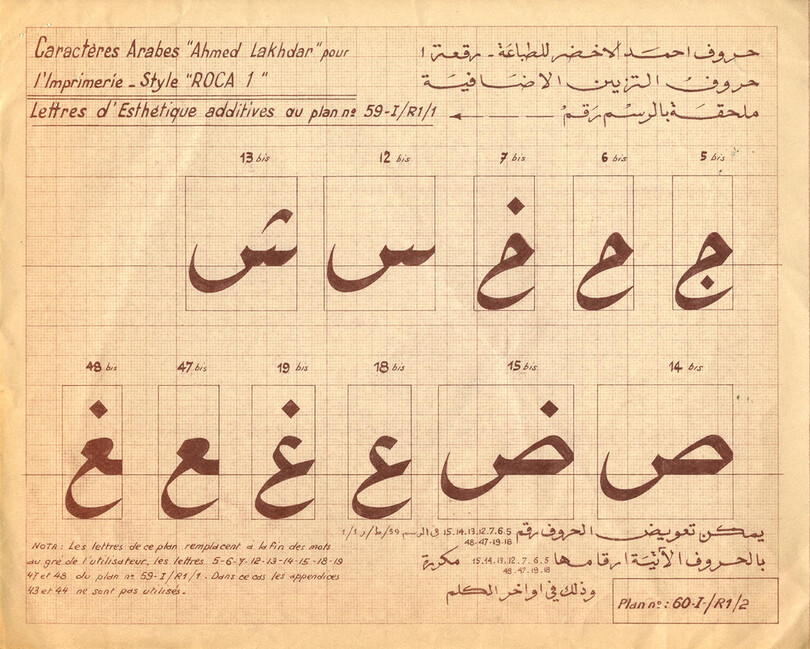 Caractères Arabes "Ahmed Lakhdar" pour
l'Imprimerie - Style "ROCA 1"
Lettres d'Esthétique additives au plan nº 59-I/R1/1
حروف احمد الاخضر للطباعة - رقعة 1
حروف التزيين الاضافية
ملحقة بالرسم رقم
13 bis 12 bis 7 bis 6 bis 5 bis
ش س خ ح ج
48 bis 47 bis 19 bis 18 bis 15 bis 14 bis
غ ع غ ع ض ص
NOTA : Les lettres de ce plan remplacent à la fin des mots
au gré de l'utilisateur, les lettres 5-6-7-12-13-14-15-18-19
47 et 48 du plan nº 59-I/R1/1. Dans ce cas les appendices
43 et 44 ne sont pas utilisés.
يمكن تعويض الحروف رقم 15.14.13.12.7.6.5 في الرسم 59/ط/ر1/1
48-47-19-18
بالحروف الآتية ارقامها 15.14.13.12.7.6.5 مكررة
48-47-19-18
وذلك في اواخر الكلم
Plan nº : 60-I-/R1/2